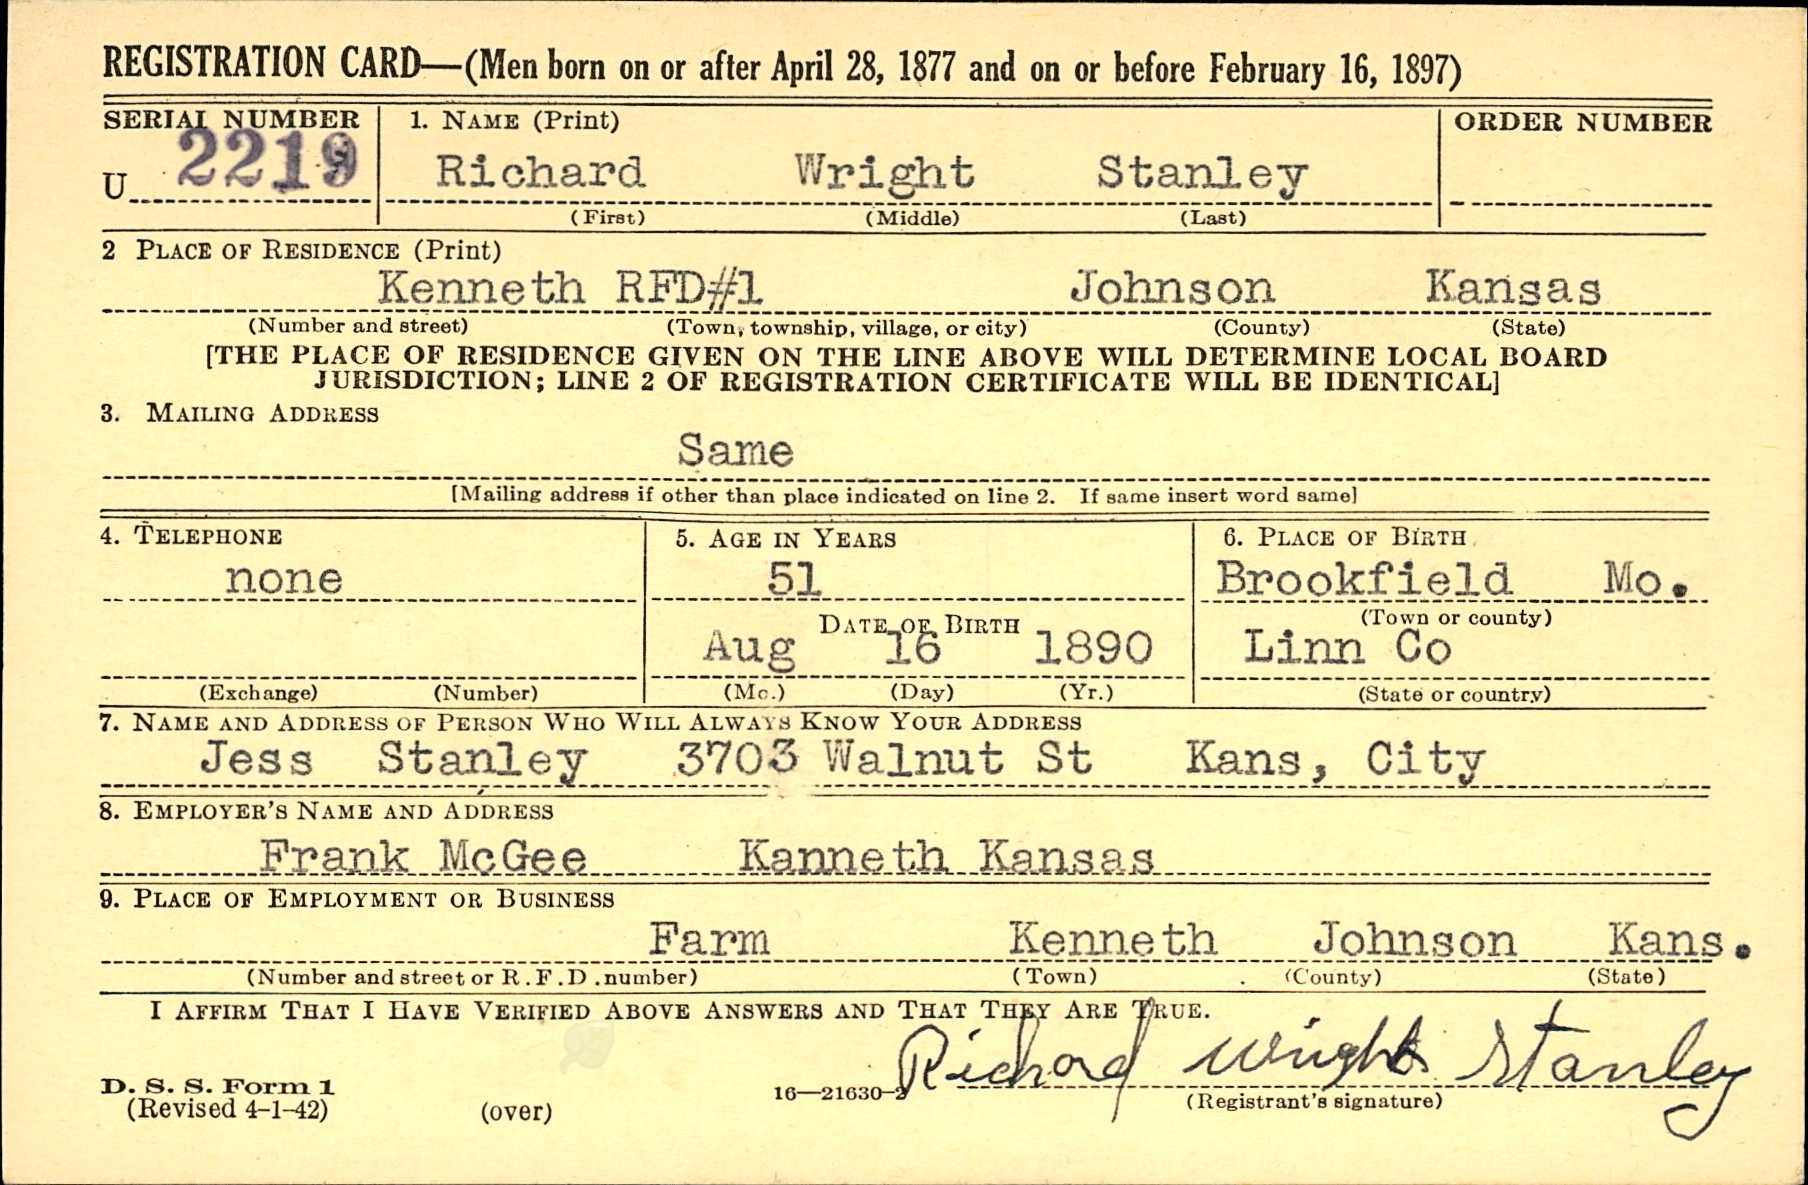 REGISTRATION CARD—(Men born on or after April 28, 1877 and on or before February 16, 1897)
SERIAL NUMBER 1. NAME (Print) ORDER NUMBER
U 2219 Richard Wright Stanley
(First) (Middle) (Last)
2 PLACE OF RESIDENCE (Print)
Kenneth RFD#1 Johnson Kansas
(Number and street) (Town, township, village, or city) (County) (State)
[THE PLACE OF RESIDENCE GIVEN ON THE LINE ABOVE WILL DETERMINE LOCAL BOARD
JURISDICTION; LINE 2 OF REGISTRATION CERTIFICATE WILL BE IDENTICAL]
3. MAILING ADDRESS
Same
[Mailing address if other than place indicated on line 2. If same insert word same]
4. TELEPHONE 5. AGE IN YEARS 6. PLACE OF BIRTH
none 51 Brookfield Mo.
DATE OF BIRTH (Town or county)
Aug 16 1890 Linn Co
(Exchange) (Number) (Mo.) (Day) (Yr.) (State or country)
7. NAME AND ADDRESS OF PERSON WHO WILL ALWAYS KNOW YOUR ADDRESS
Jess Stanley 3703 Walnut St Kans, City
8. EMPLOYER'S NAME AND ADDRESS
Frank McGee Kanneth Kansas
9. PLACE OF EMPLOYMENT OR BUSINESS
Farm Kenneth Johnson Kans.
(Number and street or R.F.D. number) (Town) (County) (State)
I AFFIRM THAT I HAVE VERIFIED ABOVE ANSWERS AND THAT THEY ARE TRUE.
Richard Wright Stanley
D. S. S. Form 1
(Revised 4-1-42) (over) 16—21630-2 (Registrant's signature)